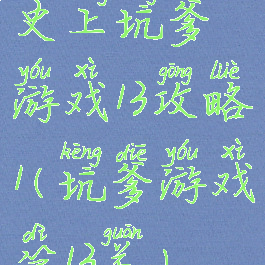 史上坑爹
yóu xì gōng lüè
游戏13攻略
kēng diē yóu xì
1(坑爹游戏
dì guān
第13关)